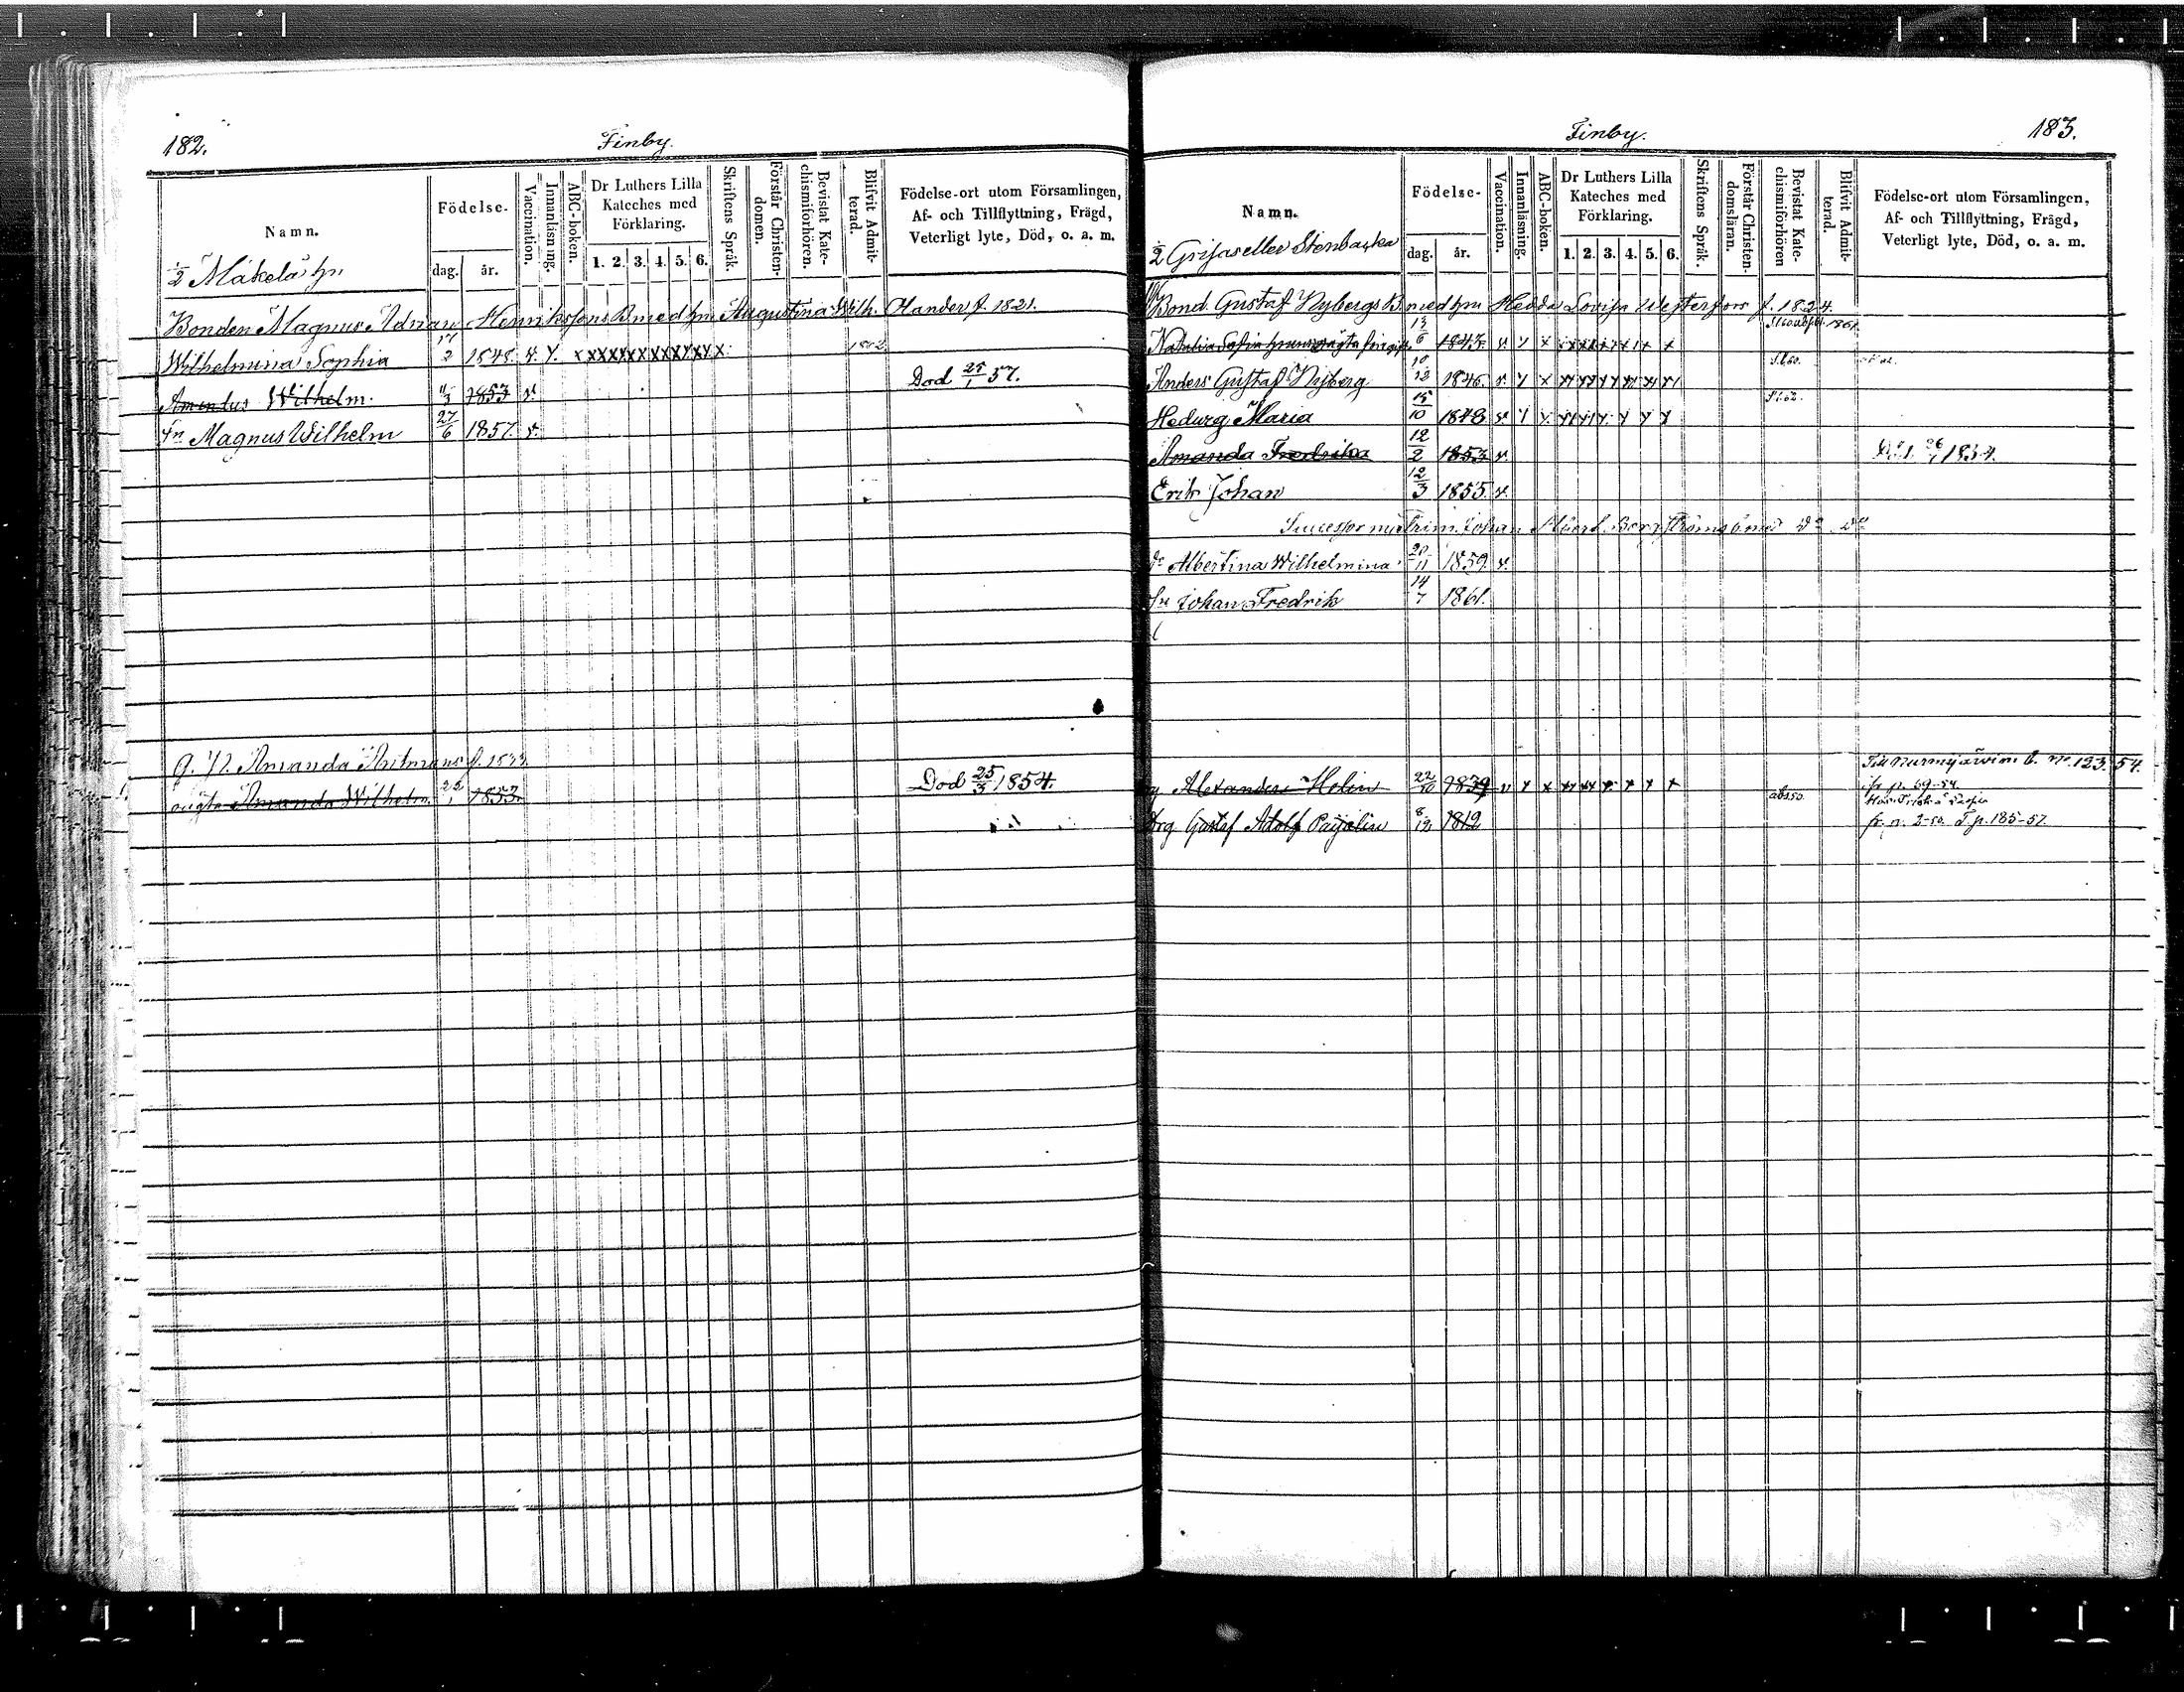 182.
Finby.
Namn.
Födelse.
dag. år.
Vaccination.
Innanläsning.
ABC-boken.
Dr Luthers Lilla
Kateches med
Förklaring.
1. 2. 3. 4. 5. 6.
Skriftens Språk.
Förstår Christen-
domen.
Bevistat Kate-
chismiförhören.
Blifvit Admit-
terad.
Födelse-ort utom Församlingen,
Af- och Tillflyttning, Frägd,
Veterligt lyte, Död, o. a. m.
1/2 Mäkelä
Bonden Magnus Adrian Henrikssons B med hu Augustina Wilh. Olander f. 1821.
Wilhelmina Sophia 17/2 1848. v. x x x x x x x x x x x x 1862
Amandus Wilhelm. 11/3 1853 v. Död 25/1 57.
Sn Magnus Wilhelm 27/6 1857. v.
Q. P. Amanda f. 1833.
oägta Amanda Wilhelm. 22/1 1853. Död 25/3 1854.
Finby.
183.
Namn.
Födelse-
dag. år.
Vaccination.
Innanläsning.
ABC-boken.
Dr Luthers Lilla
Kateches med
Förklaring.
1. 2. 3. 4. 5. 6.
Skriftens Språk.
Förstår Christen-
domsläran.
Bevistat Kate-
chismiförhören
Blifvit Admit-
terad.
Födelse-ort utom Församlingen,
Af- och Tillflyttning, Frägd,
Veterligt lyte, Död, o. a. m.
1/2 Grisas eller Stenbacka
Bond. Gustaf Nybergs B. med hu Hedda Lovisa Westerfors f. 1824.
Natalia Sofia oägta 13/6 1843. v x 1861.
Anders Gustaf Nyberg 10/12 1846. v.
Hedvig Maria 15/10 1848 v.
Amanda Fredrika 12/2 1853 v. 26/1 1854.
Erik Johan 12/3 1855. v.
Johan Bergströms
dr Albertina Wilhelmina 20/11 1859. v.
Sn Johan Fredrik 14/7 1861.
Till Nurmijärvi m. b. No. 123. 54.
Alexander Helin 22/10 1839 v x x fr p. 69-54.
Drg Gustaf Adolf Paijalin 8/12 1812 fr. p. 2-50. T. p. 185-57.